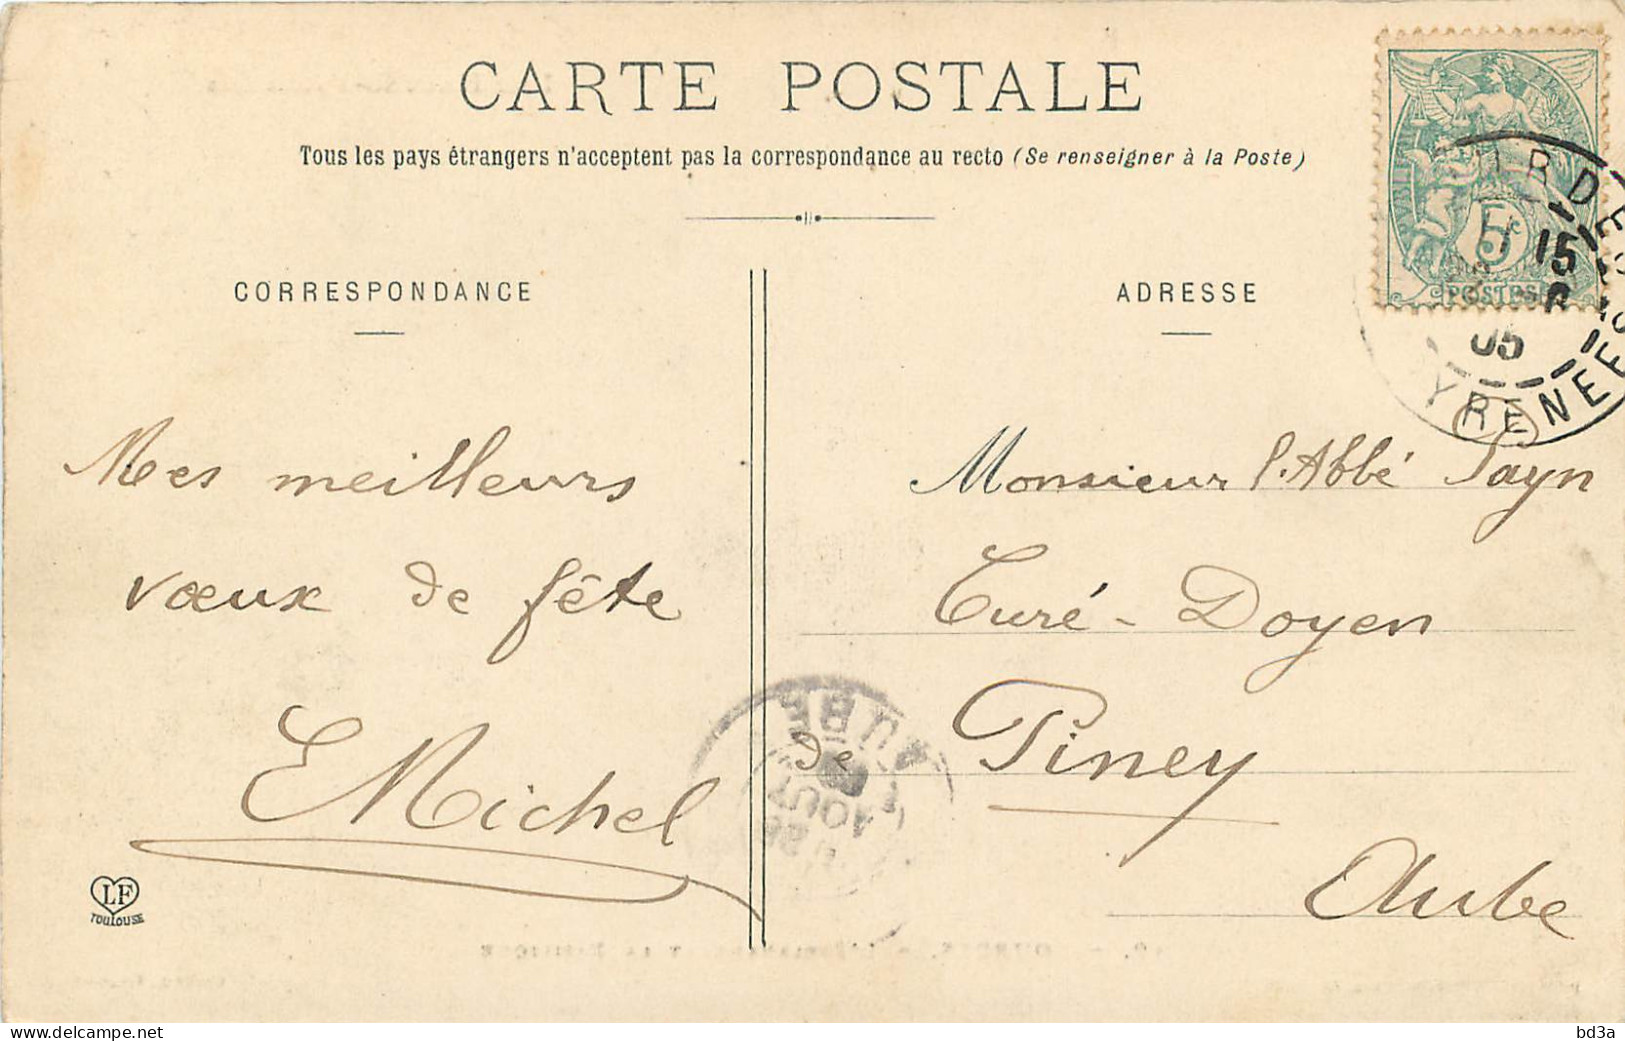 CARTE POSTALE
Tous les pays étrangers n'acceptent pas la correspondance au recto (Se renseigner à la Poste)
CORRESPONDANCE
ADRESSE
5c
POSTES
15
05
YRENEE
Mes meilleurs
vœux de fête
EMichel
Monsieur l'Abbé
Curé-Doyen
de Piney
Aube
AUBE
AOUT
LF
TOULOUSE
www.delcampe.net
bd3a